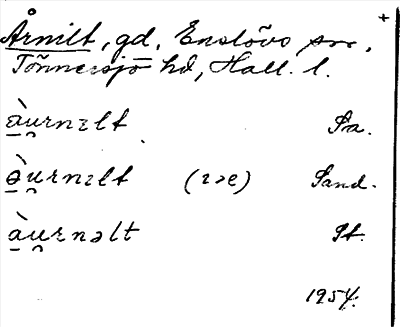 +
Årnilt, gd, Enslövs sn,
Tönnersjö hd, Hall. l.
à̠u̯rnɪlt Sa.
ə̠̀u̯rnɪlt Sand.
à̠u̯rnəlt St.
1954.